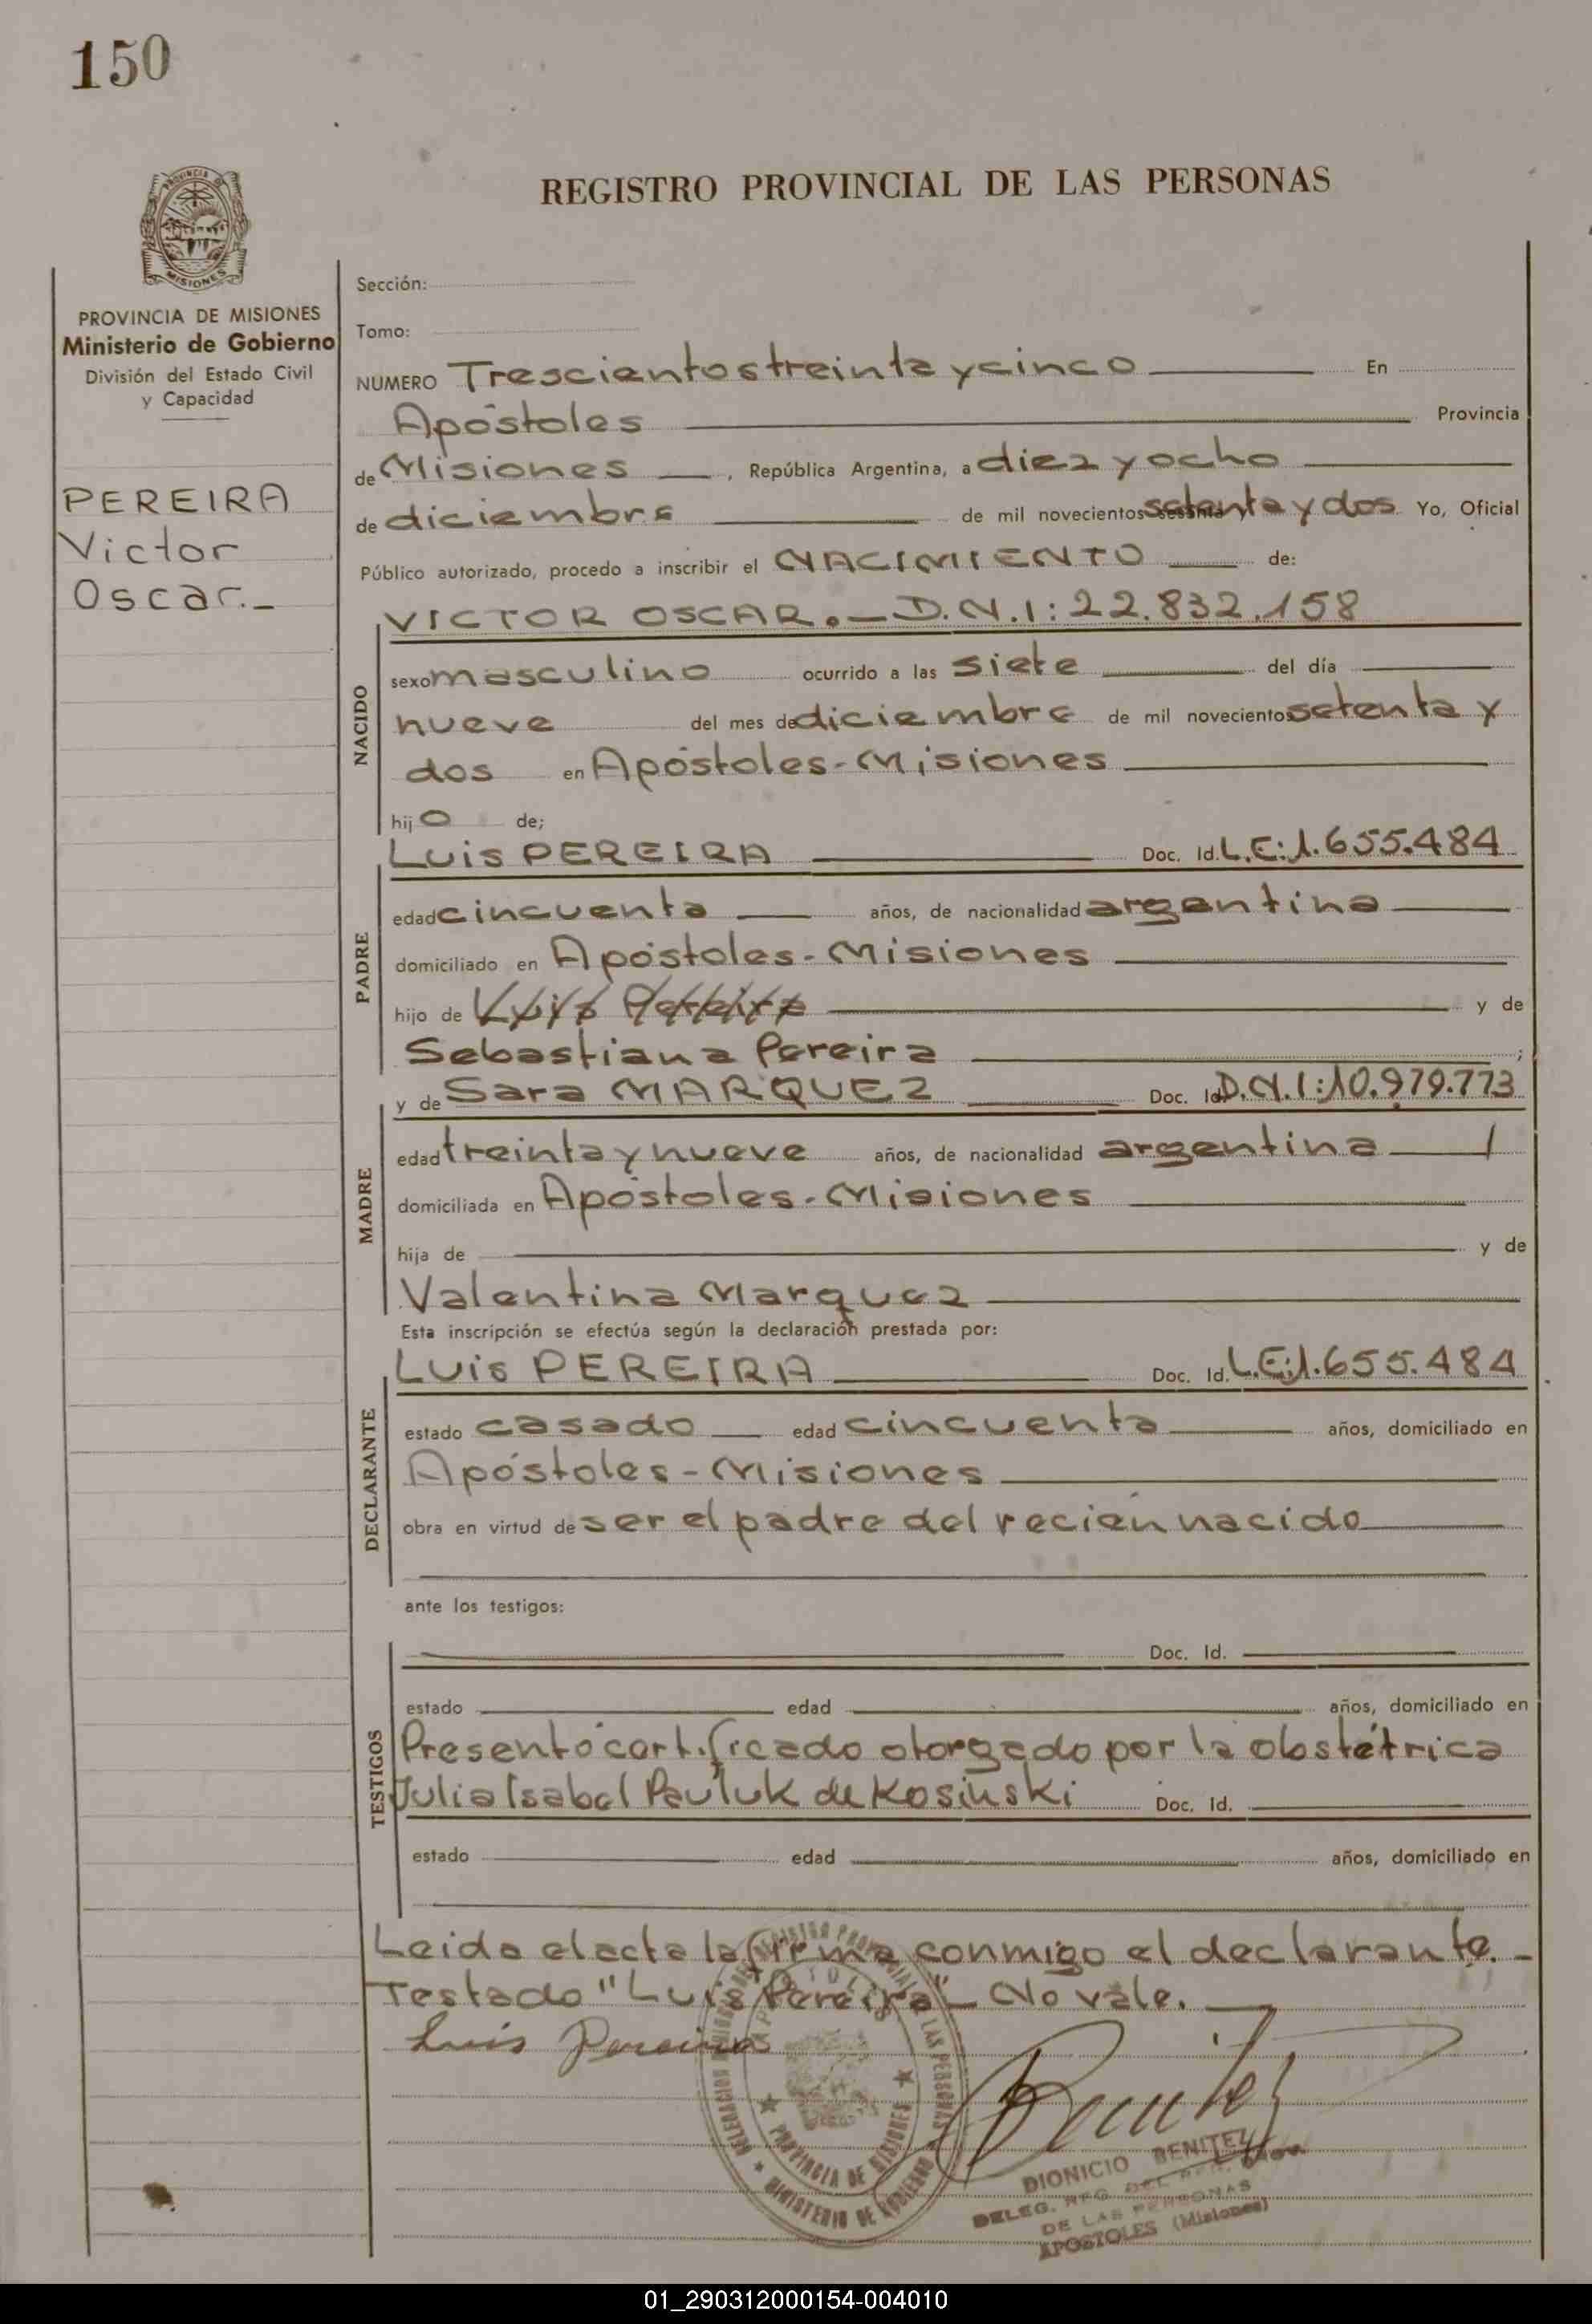 150
PROVINCIA DE
MISIONES
REGISTRO PROVINCIAL DE LAS PERSONAS
PROVINCIA DE MISIONES
Ministerio de Gobierno
División del Estado Civil
y Capacidad
PEREIRA
Victor
Oscar._
Sección:
Tomo:
NUMERO Trescientos treinta y cinco En
Apóstoles Provincia
de Misiones, República Argentina, a diez y ocho
de diciembre de mil novecientos setenta y dos Yo, Oficial
Público autorizado, procedo a inscribir el NACIMIENTO de:
VICTOR OSCAR._ D.N.I: 22.832.158
NACIDO
sexo masculino ocurrido a las siete del día
nueve del mes de diciembre de mil novecientos setenta y
dos en Apóstoles-Misiones
hijo de;
Luis PEREIRA Doc. Id. L.E:1.655.484
PADRE
edad cincuenta años, de nacionalidad argentina
domiciliado en Apóstoles-Misiones
hijo de Luis Pereira y de
Sebastiana Pereira ;
y de Sara MARQUEZ Doc. Id. D.N.I:10.979.773
MADRE
edad treinta y nueve años, de nacionalidad argentina
domiciliada en Apóstoles-Misiones
hija de y de
Valentina Marquez
Esta inscripción se efectúa según la declaración prestada por:
Luis PEREIRA Doc. Id. L.E:1.655.484
DECLARANTE
estado casado edad cincuenta años, domiciliado en
Apóstoles-Misiones
obra en virtud de ser el padre del recién nacido
ante los testigos:
Doc. Id.
TESTIGOS
estado edad años, domiciliado en
Presentó certificado otorgado por la obstétrica
Julia Isabel Pauluk de Kosinski Doc. Id.
estado edad años, domiciliado en
Leida el acta la firma conmigo el declarante._
Testado "Luis Pereira"_ No vale.
Luis Pereira
PROVINCIA DE MISIONES
MINISTERIO DE GOBIERNO
Benitez
DIONICIO BENITEZ
DELEG. REG. DEL
DE LAS PERSONAS
APOSTOLES (Misiones)
01_290312000154-004010